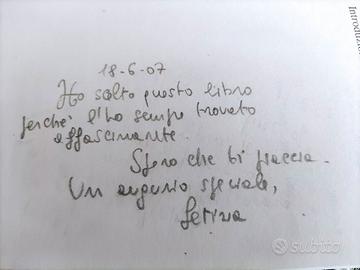 18-6-07
Ho scelto questo libro
perché l'ho sempre trovato
affascinante.
Spero che ti piaccia.
Un augurio speciale,
subito